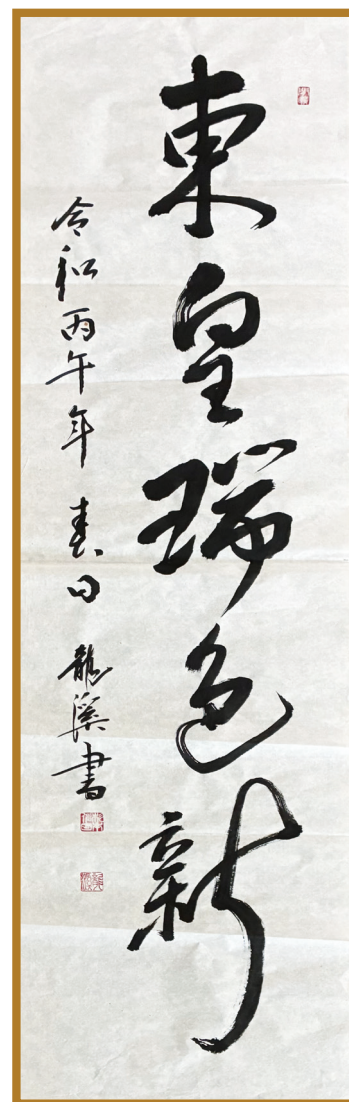 東皇瑞色新
令和丙午年 春日 龍溪書